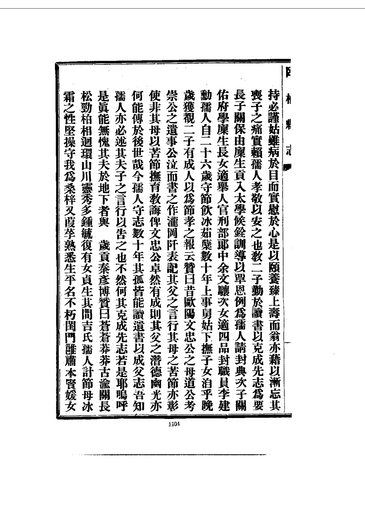 持必謹姑雖病於目而實慰於心是以頤養臻上壽而翁亦藉以漸忘其
喪子之痛實賴孺人孝敬以安之也教二子勤於讀書以克成先志爲要
長子關保由廩生貢入太學候銓訓導以覃恩例爲孺人請封典次子關
佑府學廩生長女適舉人官刑部郎中余文驤次女適四品封職員李建
勳孺人自二十六歲守節飲冰茹蘗數十年上事舅姑下撫子女洎乎晚
歲獲觀二子有成人以爲節孝之報云贊曰昔歐陽文忠公之母道公考
崇公之遺事公泣而書之作瀧岡阡表記其父之言行其母之苦節亦彰
使非其母以苦節撫育教誨俾文忠公卓然有成則其父之潛德幽光亦
何能傳於後世哉今孺人守志數十年其孤皆能讀遺書以成父志吾知
孺人亦必述其夫子之言行以告之也不然何其克成先志若是耶嗚呼
是眞能無愧其夫於地下者與 歲貢秦彥博贊曰蒼蒼莽莽古瀹關長
松勁柏相迴環山川靈秀多鍾毓復有女貞生其間吉氏孺人計節母冰
霜之性堅操守我爲桑梓又葭莩熟悉生平名不朽閨門雝肅本賢媛女
1104